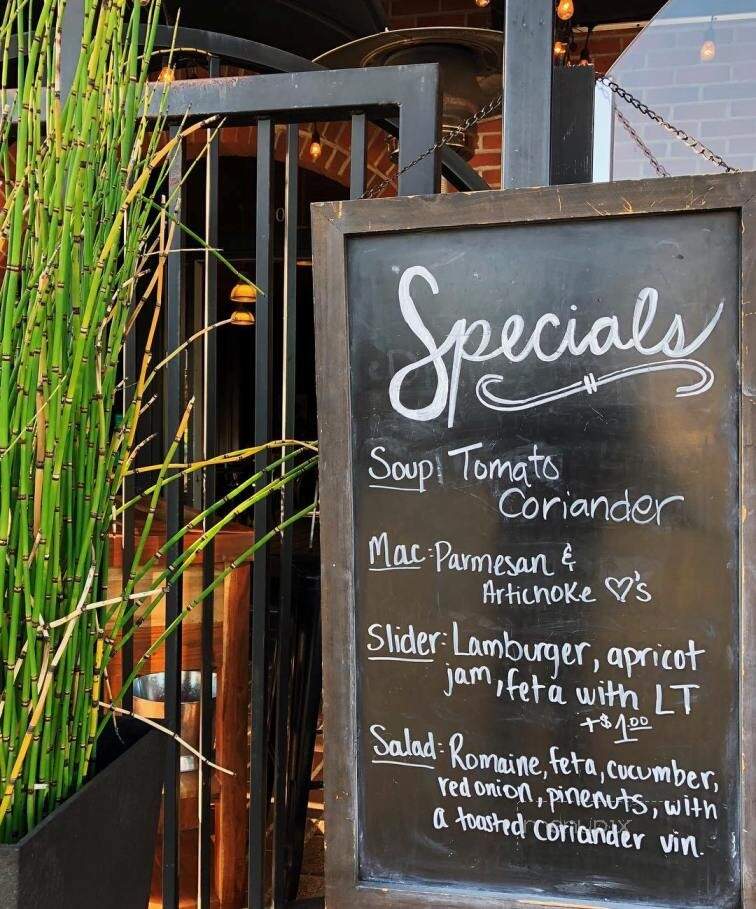 Specials
Soup: Tomato
Coriander
Mac: Parmesan &
Artichoke ♡'s
Slider: Lamburger, apricot
jam, feta with LT
+$1.00
Salad: Romaine, feta, cucumber,
red onion, pinenuts, with
a toasted coriander vin.